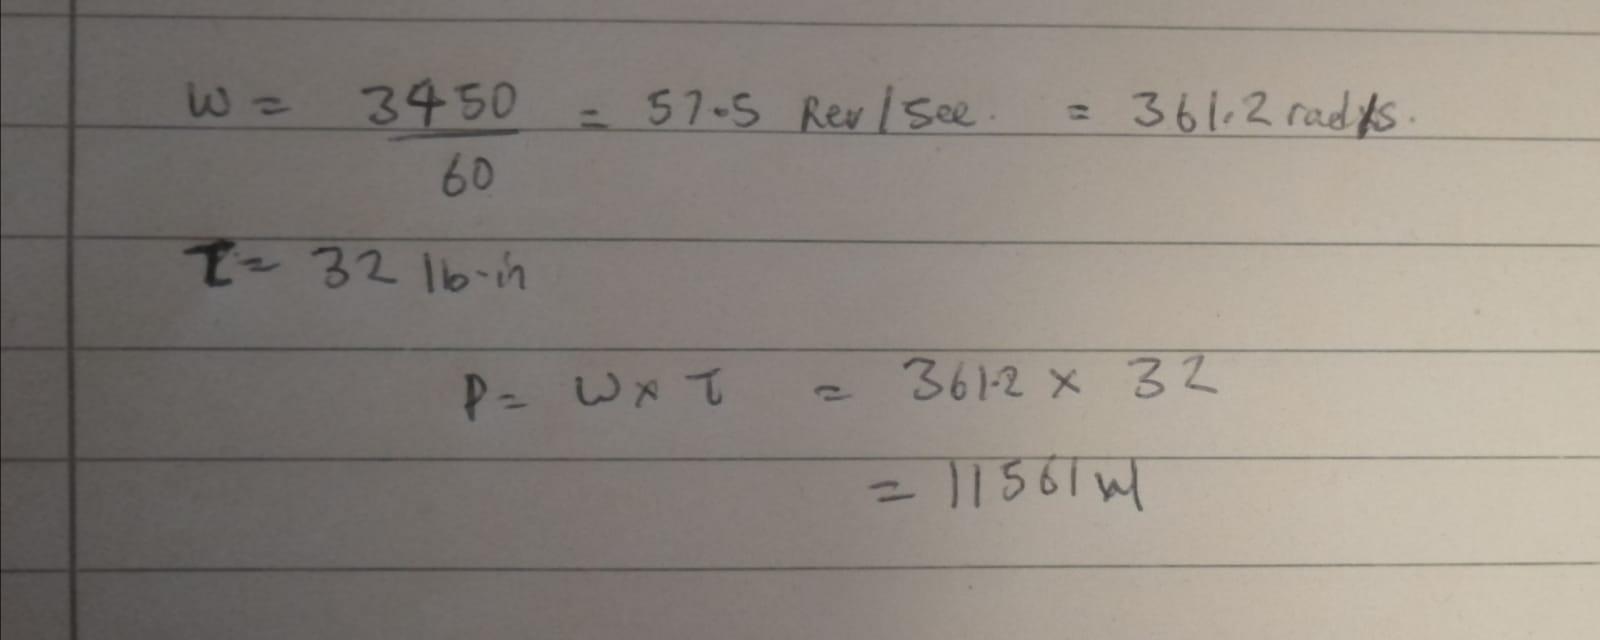 W = 3450/60 = 57.5 Rev/Sec. = 361.2 rad/s.
τ = 32 lb-in
P = W x τ = 361.2 x 32
= 11561 W